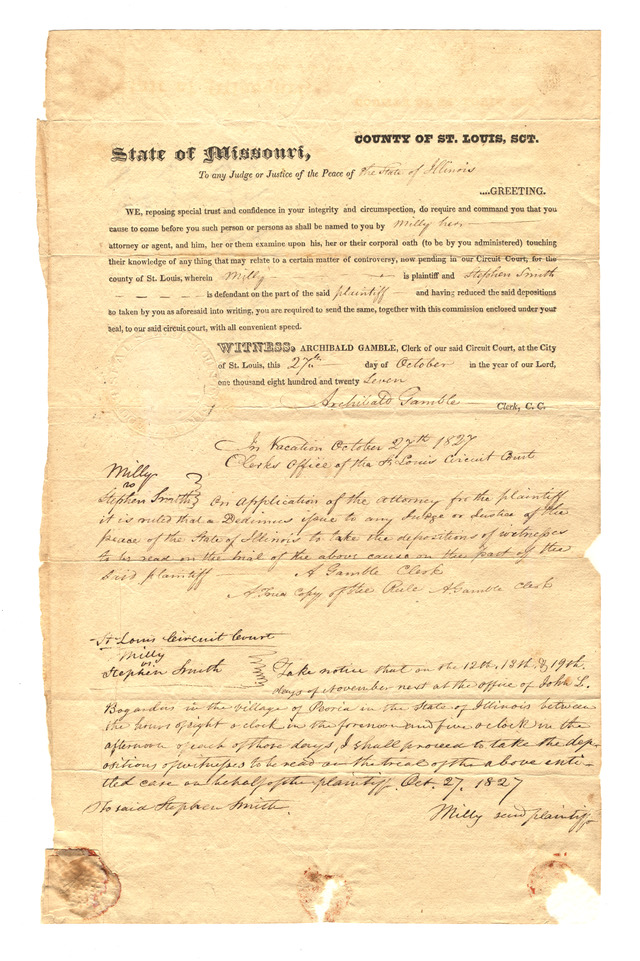 COUNTY OF ST. LOUIS, SCT.
State of Missouri,
To any Judge or Justice of the Peace of the State of Illinois
....GREETING.
WE, reposing special trust and confidence in your integrity and circumspection, do require and command you that you
cause to come before you such person or persons as shall be named to you by Milly her
attorney or agent, and him, her or them examine upon his, her or their corporal oath (to be by you administered) touching
their knowledge of any thing that may relate to a certain matter of controversy, now pending in our Circuit Court, for the
county of St. Louis, wherein Milly is plaintiff and Stephen Smith
is defendant on the part of the said plaintiff and having reduced the said depositions
so taken by you as aforesaid into writing, you are required to send the same, together with this commission enclosed under your
seal, to our said circuit court, with all convenient speed.
WITNESS, ARCHIBALD GAMBLE, Clerk of our said Circuit Court, at the City
of St. Louis, this 27th day of October in the year of our Lord,
one thousand eight hundred and twenty Seven
Archibald Gamble Clerk, C. C.
In Vacation October 27th 1827
Clerks Office of the St Louis Circuit Court
Milly
vs
Stephen Smith On application of the attorney for the plaintiff
it is ruled that a Dedimus issue to any Judge or Justice of the
peace of the State of Illinois to take the depositions of witnesses
to be read on the trial of the above cause on the part of the
said plaintiff A Gamble Clerk
A True Copy of the Rule A Gamble Clerk
St Louis Circuit Court
Milly
vs.
Stephen Smith Take notice that on the 12th, 13th, & 19th
days of November next at the office of John L.
Bogardus in the village of Peoria in the State of Illinois between
the hours of eight o clock in the forenoon and five o clock in the
afternoon of each of those days, I shall proceed to take the dep-
ositions of witnesses to be read on the trial of the above enti-
tled case on behalf of the plaintiff Oct. 27. 1827
To said Stephen Smith. Milly said plaintiff